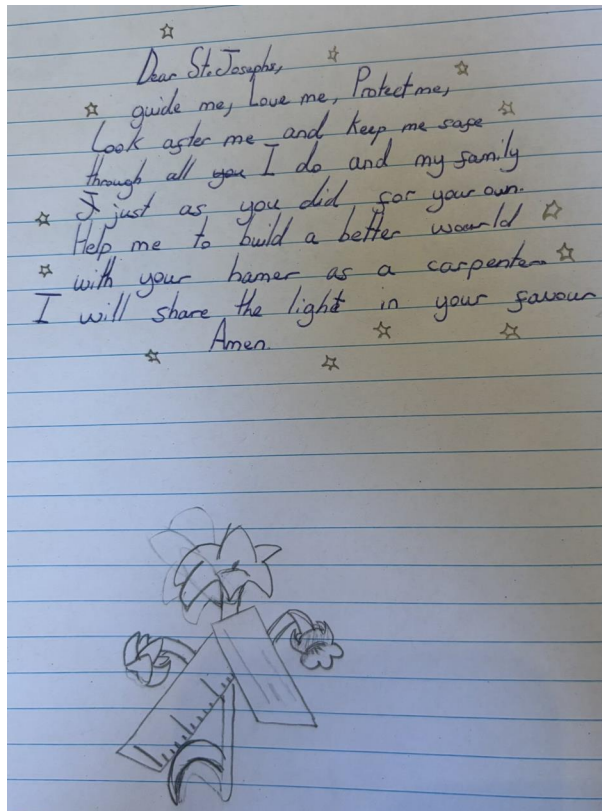 Dear St. Josephs,
guide me, Love me, Protect me,
Look after me and keep me safe
through all you I do and my family
I just as you did for your own.
Help me to build a better woarld
with your hamer as a carpenter
I will share the light in your favour
Amen.